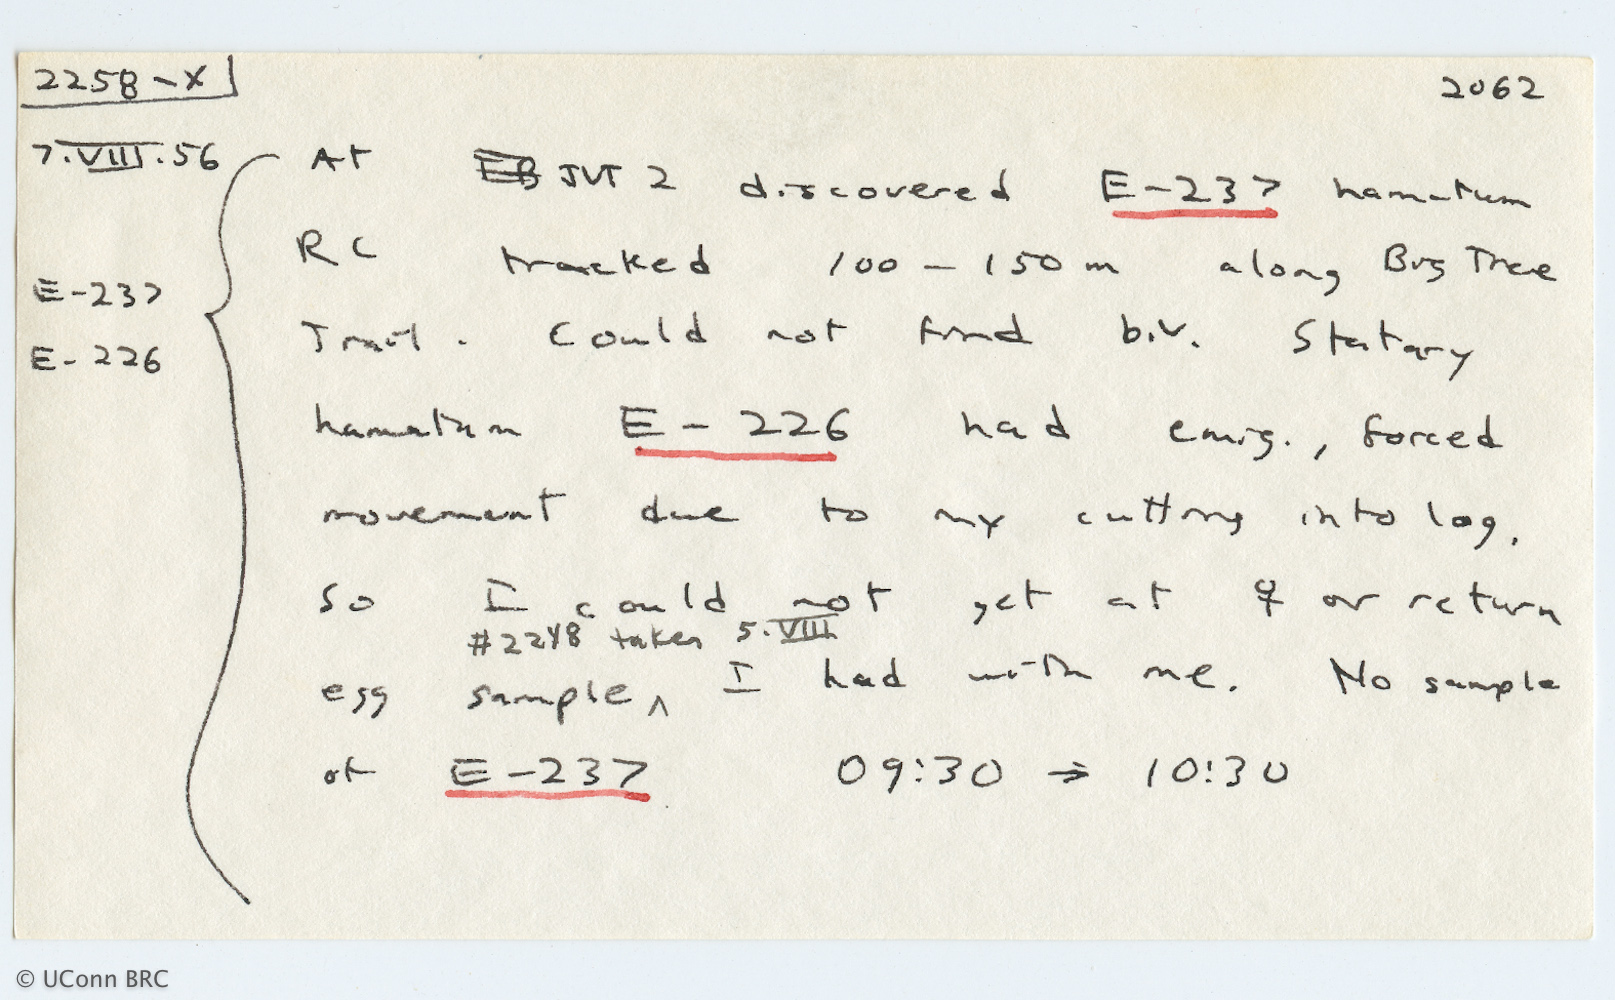 2258-X
2062
7.VIII.56
At JVT 2 discovered E-237 hamatum
RC tracked 100-150 m along Big Tree
E-237
Trail. Could not find biv. Statary
E-226
hamatum E-226 had emig., forced
movement due to my cutting into log,
so I could not get at ♀ or return
#2248 taken 5.VIII
egg sample ^ I had with me. No sample
of E-237 09:30 → 10:30
© UConn BRC